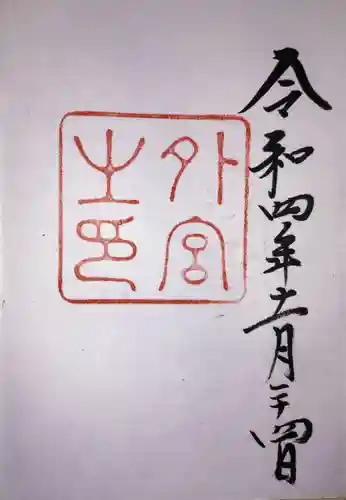 令和四年十一月二十四日
外宮之印